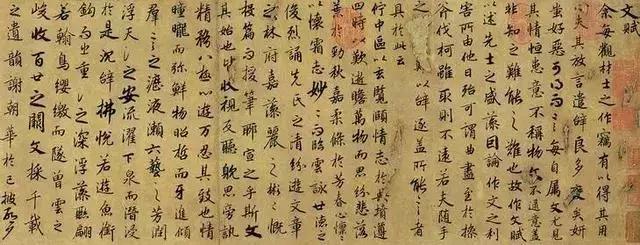 文賦
余每觀材士之作竊有以得其用
心夫其放言遣辭良多變矣妍
蚩好惡可得而言每自屬文尤見
其情恒患意不稱物文不逮意蓋
非知之難能之難也故作文賦
以述先士之盛藻因論作文之利
害所由他日殆可謂曲盡至於操
斧伐柯雖取則不遠若夫隨手
以辭逐蓋所能言者
具於此云
佇中區以玄覽頤情志於典墳遵
四時以歎逝瞻萬物而思紛悲落
葉於勁秋嘉柔條於芳春心懍懍
以懷霜志妙妙而臨雲詠世德之
俊烈誦先民之清芬遊文章
之林府嘉藻麗之彬彬慨
投篇而援筆聊宣之乎斯文
其始也收視反聽耽思旁訊
精騖八極心遊萬仞其致也情
曈曨而彌鮮物昭晰而互進傾
群言之瀝液漱六藝之芳潤
浮天淵之安流濯下泉而潛浸
於是沈辭怫悅若遊魚銜
鉤而出重淵之深浮藻聯翩
若翰鳥纓繳而墜曾雲之
峻收百世之闕文採千載
之遺韻謝朝華於已披啟夕